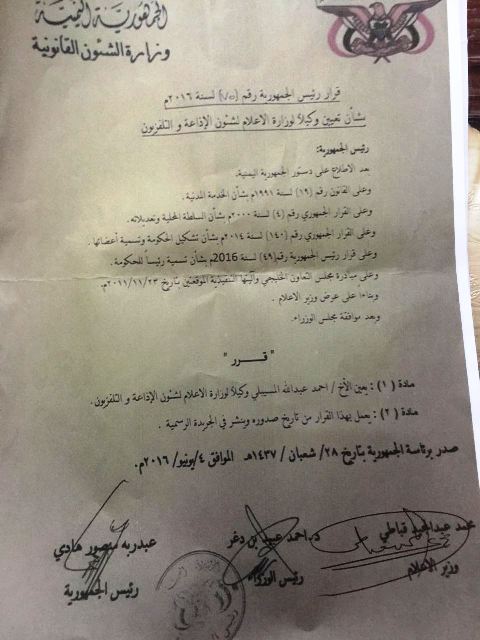 الجمهورية اليمنية
وزارة الشئون القانونية
قرار رئيس الجمهورية رقم (٧٥) لسنة ٢٠١٦م
بشأن تعيين وكيلاً لوزارة الاعلام لشئون الإذاعة و التلفزيون
رئيس الجمهورية:
بعد الاطلاع على دستور الجمهورية اليمنية.
وعلى القانون رقم (١٩) لسنة ١٩٩١م بشأن الخدمة المدنية .
وعلى القرار الجمهوري رقم (٤) لسنة ٢٠٠٠م بشأن السلطة المحلية وتعديلاته.
وعلى القرار الجمهوري رقم (١٤٠) لسنة ٢٠١٤م بشأن تشكيل الحكومة وتسمية أعضائها .
وعلى قرار رئيس الجمهورية رقم (٤٩) لسنة 2016م بشأن تسمية رئيساً للحكومة .
وعلى مبادرة مجلس التعاون الخليجي وآليتها التنفيذية الموقعتين بتاريخ ٢٠١١/١١/٢٣م.
وبناءا على عرض وزير الاعلام .
وبعد موافقة مجلس الوزراء.
" قــرر "
مادة ( ١ ) : يعين الأخ / احمد عبدالله المسيبلي وكيلاً لوزارة الاعلام لشئون الإذاعة و التلفزيون .
مادة ( ٢ ) : يعمل بهذا القرار من تاريخ صدوره وينشر في الجريدة الرسمية .
صدر برئاسة الجمهورية بتاريخ ٢٨/ شعبان / ١٤٣٧هـ الموافق ٤/يونيو/ ٢٠١٦م.
محمد عبدالمجيد قباطي د. احمد عبيد بن دغر عبدربه منصور هادي
وزير الاعلام رئيس الوزراء رئيس الجمهورية